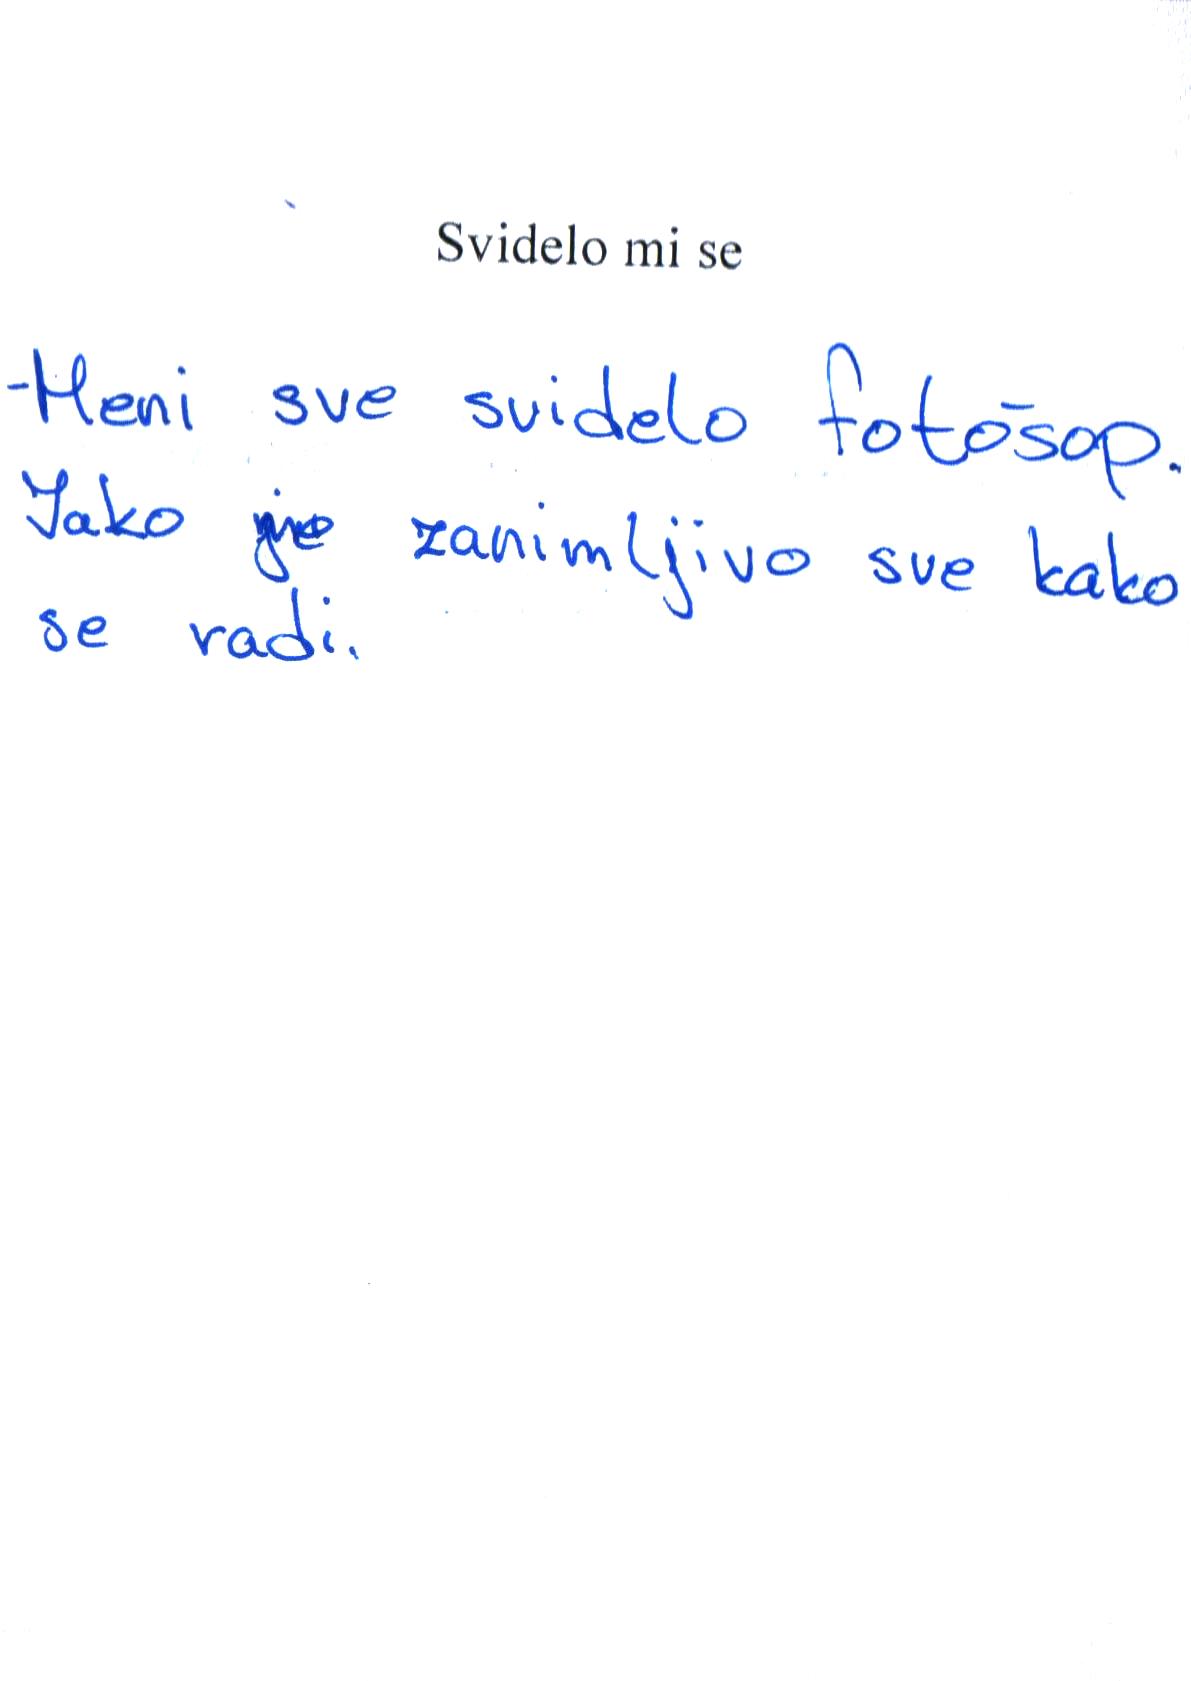 Svidelo mi se
-Meni sve svidelo fotošop.
Jako je zanimljivo sve kako
se radi.